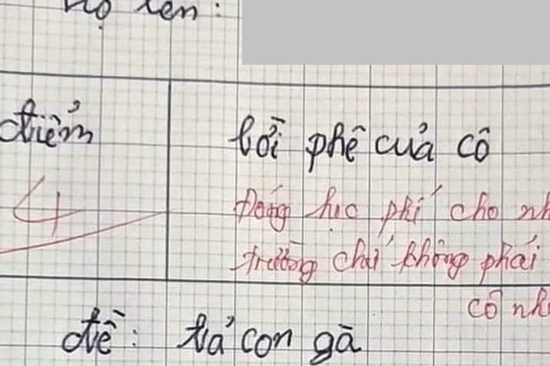 Họ tên:
điểm
lời phê của cô
4
Đóng học phí cho nh
trường chứ không phải
cô nh
đề: tả con gà